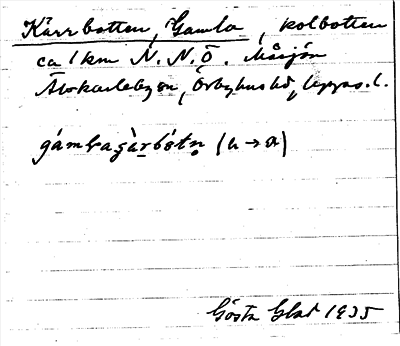 Kärrbotten, Gamla, kolbotten
ca 1 km N.N.Ö. Måsjön
Älvkarleby sn, Örbyhus hd, Uppsa. l.
gámbaçàrbótn (a→a)
Gösta Elad 1935